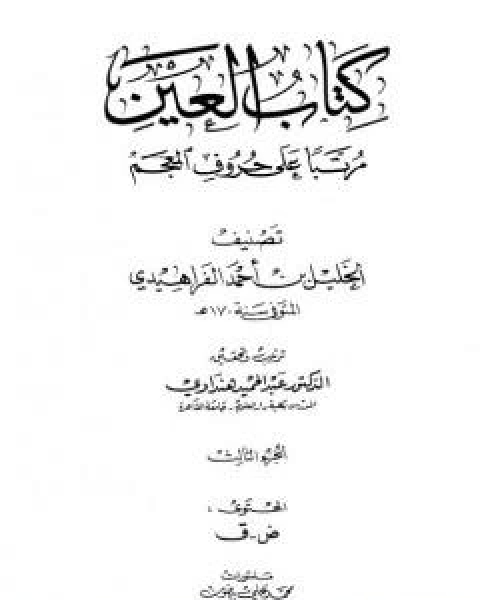 كِتَابُ العَيْن
مُرَتَّبًا عَلَى حُرُوفِ المُعْجَم
تَصْنِيف
الخَلِيل بن أَحْمَد الفَرَاهِيدي
المتوفى سنة ١٧٠هـ
ترتيب وتحقيق
الدكتور عبد الحميد هنداوي
المدرس بكلية دار العلوم - جامعة القاهرة
الجزء الثالث
المحتوى :
ض - ق
منشورات
محمد علي بيضون